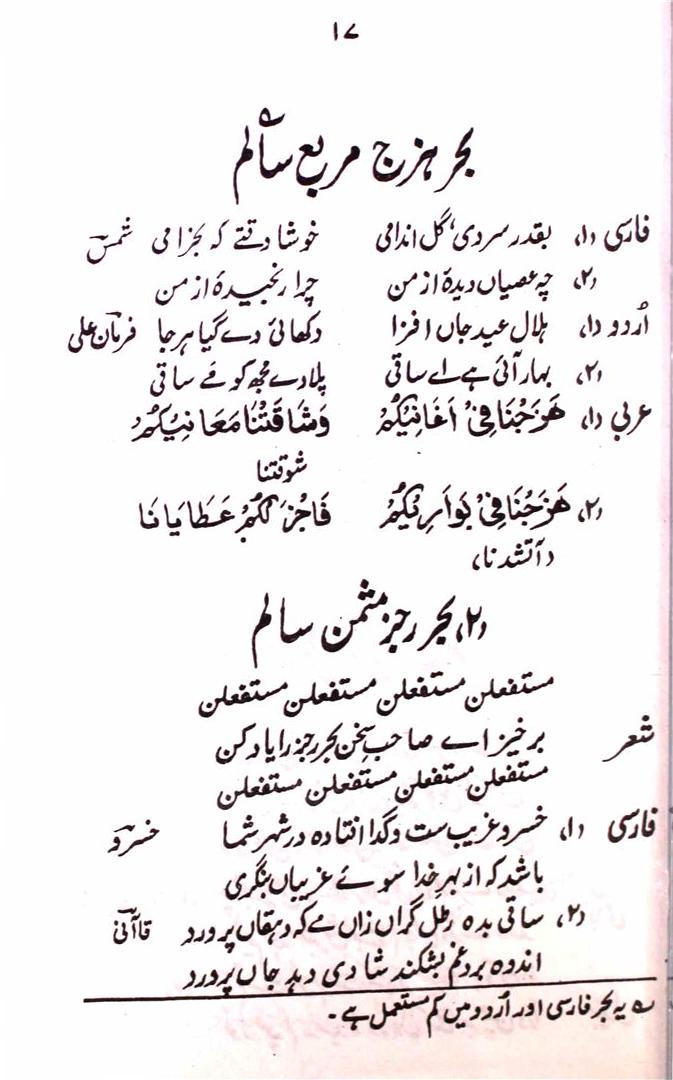 ۱۷
بحر ہزج مربع سالم
فارسی (۱) بقدر سروی، گل اندامی خوشا وقتے کہ بخرامی شمس
(۲) چہ عصیاں دیدۂ از من چرا رنجیدۂ از من
اُردو (۱) ہلال عید جاں افزا دکھائی دے گیا ہرجا فرمان علی
(۲) بہار آئی ہے اے ساقی پلادے مجھ کو مے ساقی
عربی (۱) هَزَجْنَا فِیْ اَغَانِیْکُمْ وَشَاقَتْنَا مَعَانِیْکُمْ
شوقتنا
(۲) هَزَجْنَا فِیْ بَوَادِیْکُمْ فَاَجْزَلْکُمْ عَطَایَانَا
(آتشدنا)
(۲) بحر رجز مثمن سالم
مستفعلن مستفعلن مستفعلن مستفعلن
شعر برخیز اے صاحب سخن بحر رجز را یاد کن
مستفعلن مستفعلن مستفعلن مستفعلن
فارسی (۱) خسرو غریب ست و گدا افتادہ در شہر شما خسرو
باشد کہ از بہر خدا سوے غریباں بنگری
(۲) ساقی بدہ رطل گراں زاں مے کہ دہقاں پرورد قاآنی
اندوہ برد غم بشکند شادی دہد جاں پرورد
ے یہ بحر فارسی اور اُردو میں کم مستعمل ہے۔